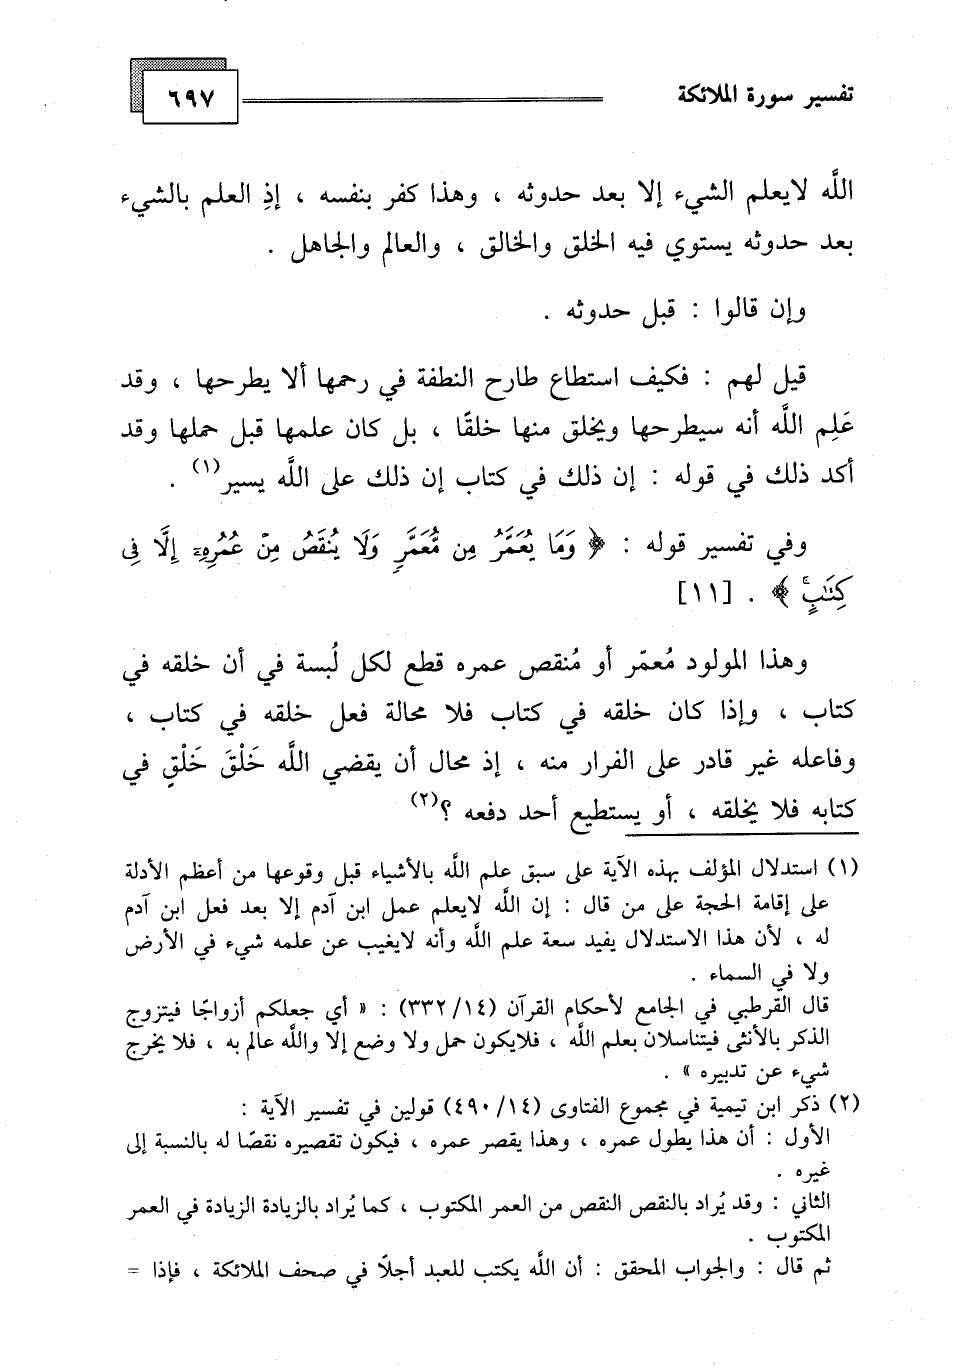 تفسير سورة الملائكة
٦٩٧
اللَّه لايعلم الشيء إلا بعد حدوثه ، وهذا كفر بنفسه ، إذِ العلم بالشيء
بعد حدوثه يستوي فيه الخلق والخالق ، والعالم والجاهل .
وإن قالوا : قبل حدوثه .
قيل لهم : فكيف استطاع طارح النطفة في رحمها ألا يطرحها ، وقد
عَلِم اللَّه أنه سيطرحها ويخلق منها خلقًا ، بل كان علمها قبل حملها وقد
أكد ذلك في قوله : إن ذلك في كتاب إن ذلك على اللَّه يسير(١) .
وفي تفسير قوله : ﴿ وَمَا يُعَمَّرُ مِن مُّعَمَّرٍ وَلَا يُنقَصُ مِنْ عُمُرِهِۦٓ إِلَّا فِى
كِتَٰبٍۚ ﴾ . [١١]
وهذا المولود مُعمّر أو مُنقص عمره قطع لكل لُبسة في أن خلقه في
كتاب ، وإذا كان خلقه في كتاب فلا محالة فعل خلقه في كتاب ،
وفاعله غير قادر على الفرار منه ، إذ محال أن يقضي اللَّه خَلْقَ خَلْقٍ في
كتابه فلا يخلقه ، أو يستطيع أحد دفعه ؟(٢)
(١) استدلال المؤلف بهذه الآية على سبق علم اللَّه بالأشياء قبل وقوعها من أعظم الأدلة
على إقامة الحجة على من قال : إن اللَّه لايعلم عمل ابن آدم إلا بعد فعل ابن آدم
له ، لأن هذا الاستدلال يفيد سعة علم اللَّه وأنه لايغيب عن علمه شيء في الأرض
ولا في السماء .
قال القرطبي في الجامع لأحكام القرآن (١٤/ ٣٣٢) : « أي جعلكم أزواجًا فيتزوج
الذكر بالأنثى فيتناسلان بعلم اللَّه ، فلايكون حمل ولا وضع إلا واللَّه عالم به ، فلا يخرج
شيء عن تدبيره » .
(٢) ذكر ابن تيمية في مجموع الفتاوى (١٤/ ٤٩٠) قولين في تفسير الآية :
الأول : أن هذا يطول عمره ، وهذا يقصر عمره ، فيكون تقصيره نقصًا له بالنسبة إلى
غيره .
الثاني : وقد يُراد بالنقص النقص من العمر المكتوب ، كما يُراد بالزيادة الزيادة في العمر
المكتوب .
ثم قال : والجواب المحقق : أن اللَّه يكتب للعبد أجلًا في صحف الملائكة ، فإذا =